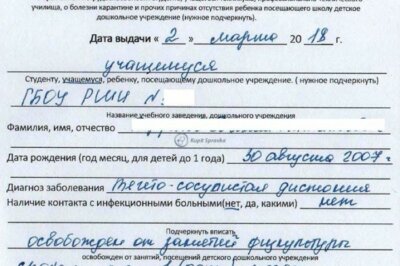 училища, о болезни карантине и прочих причинах отсутствия ребенка посещающего школу детское
дошкольное учреждение (нужное подчеркнуть).
Дата выдачи « 2 » марта 2018 г.
учащемуся
Студенту, учащемуся, ребенку, посещающему дошкольное учреждение. ( нужное подчеркнуть)
ГБОУ РШИ №.
Название учебного заведения, дошкольного учреждения
Фамилия, имя, отчество
Kupit Spravku
Дата рождения (год месяц, для детей до 1 года) 30 августа 2007 г
Диагноз заболевания Вегето-сосудистая дистония
Наличие контакта с инфекционными больными(нет, да, какими) нет
Подчеркнуть вписать
освобожден от занятий физкультуры
освобожден от занятий, посещений детского дошкольного учреждения